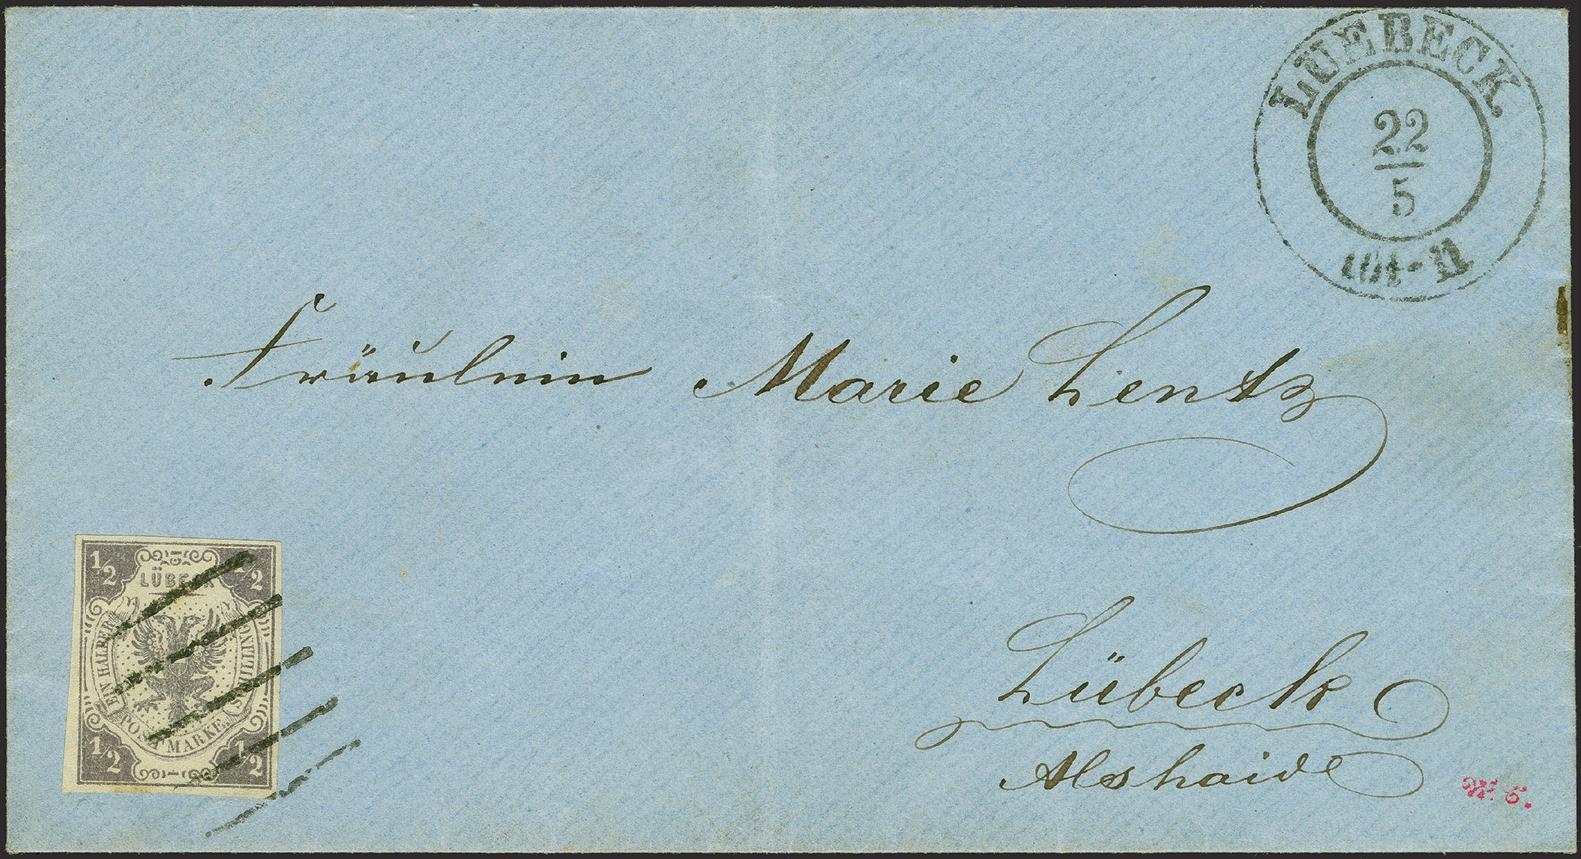 LUEBECK.
22
5
10½-11
Fräulein Marie Lentz
Lübeck
½ ½
LÜBECK
EIN HALBER SCHILLING
POSTMARKE
½ ½